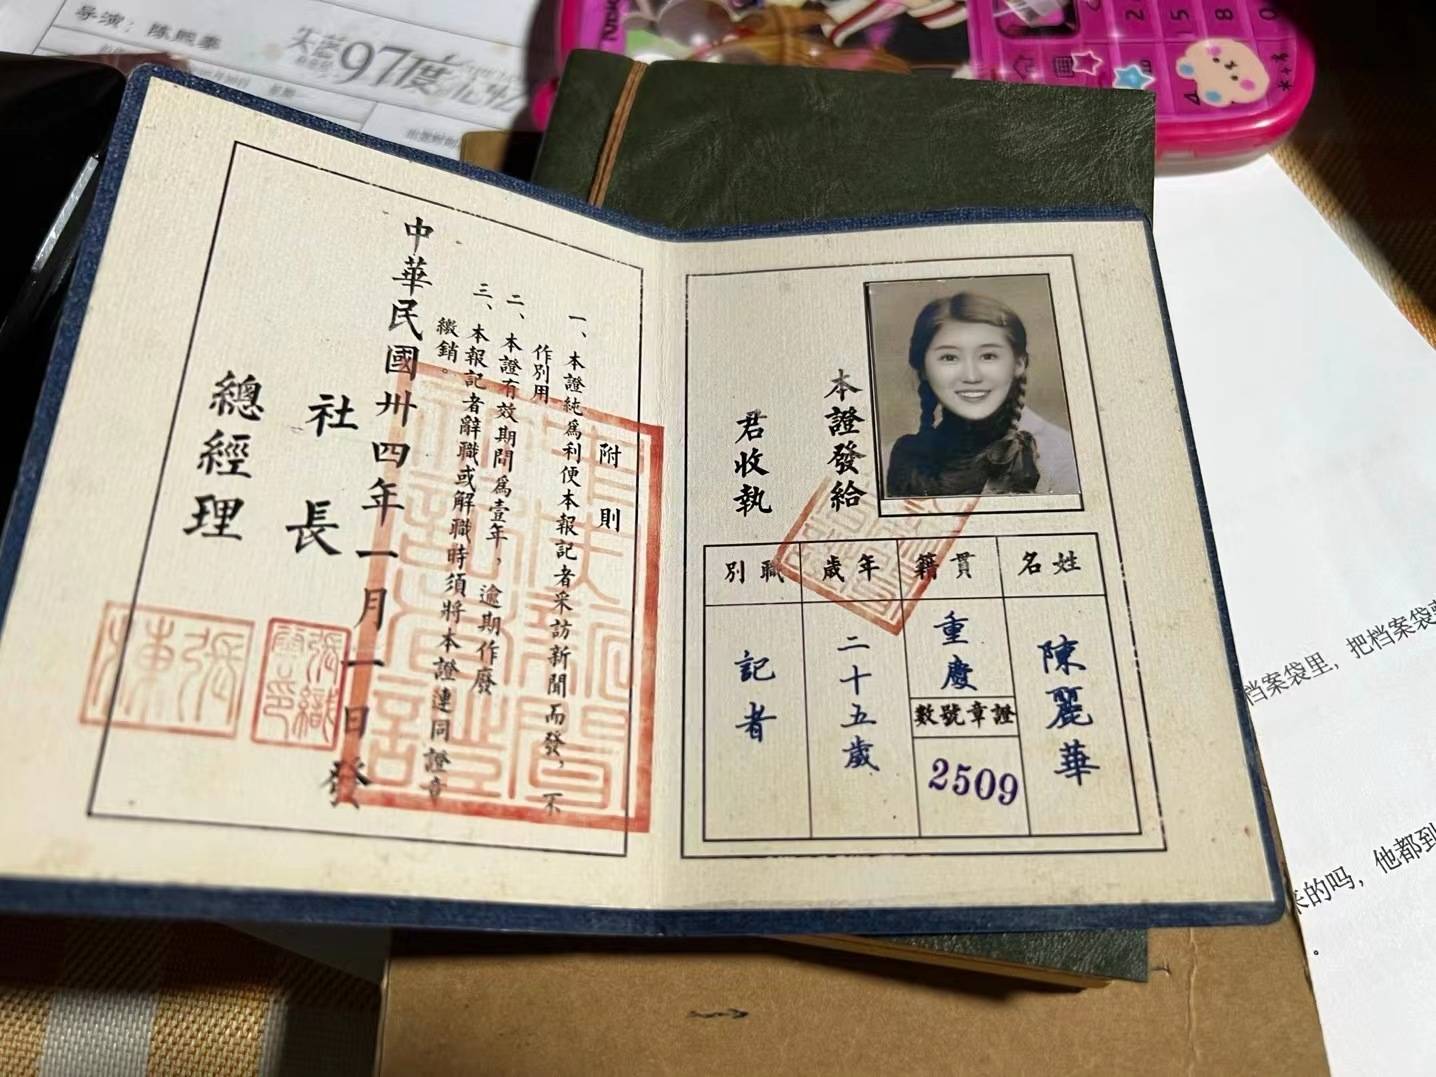 导演：陈熙泰
97度
姓名
陳麗華
籍貫
重慶
證章號數
2509
年歲
二十五歲
職別
記者
本證發給
君收執
附則
一、本證純爲利便本報記者采訪新聞而發，不
作別用
二、本證有效期間爲壹年，逾期作廢
三、本報記者辭職或解職時須將本證連同證章
繳銷。
中華民國卅四年一月一日發
社長
總經理
張
档案袋里，把档案袋
来的吗，他都到
。
2
5
8
0
4
*